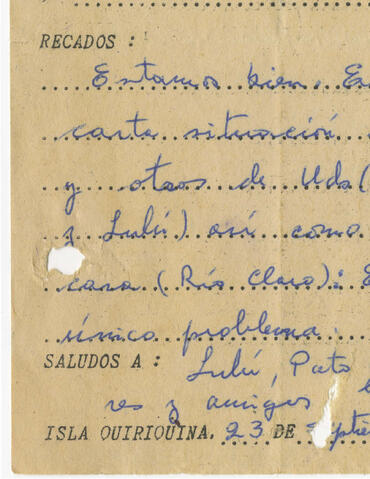 RECADOS :
Estamos bien. E
carta situación
y otros de Uds (
y Lulú) así como
casa (Río Claro): E
único problema.
SALUDOS A : Lulú, Pato
res y amigos
ISLA QUIRIQUINA, 23 DE Septie